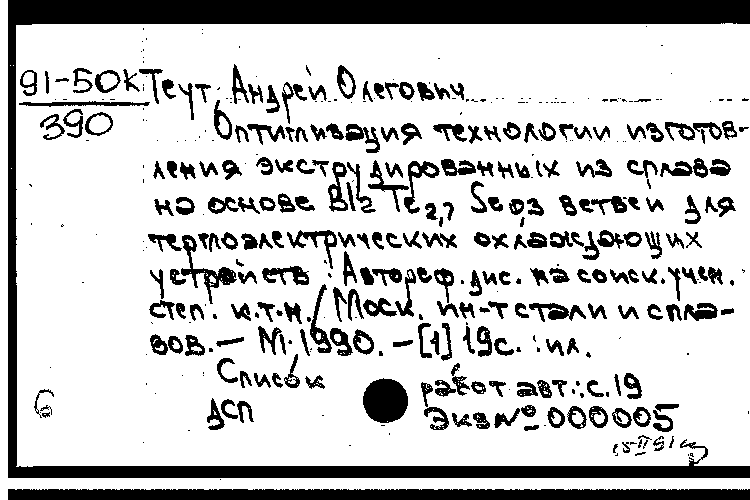 91-50К Теут, Андрей Олегович
390
Оптимизация технологии изготов-
ления экструдированных из сплава
на основе Bi2 Te2,7 Se0,3 ветвей для
термоэлектрических охлаждающих
устройств : Автореф. дис. на соиск. учен.
степ. к.т.н. / Моск. ин-т стали и спла-
вов. — М. 1990. — [1] 19с. : ил.
Список работ авт.: с. 19
6 ДСП Экз № 000005